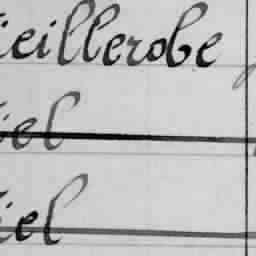 ieillerobe
iel
iel